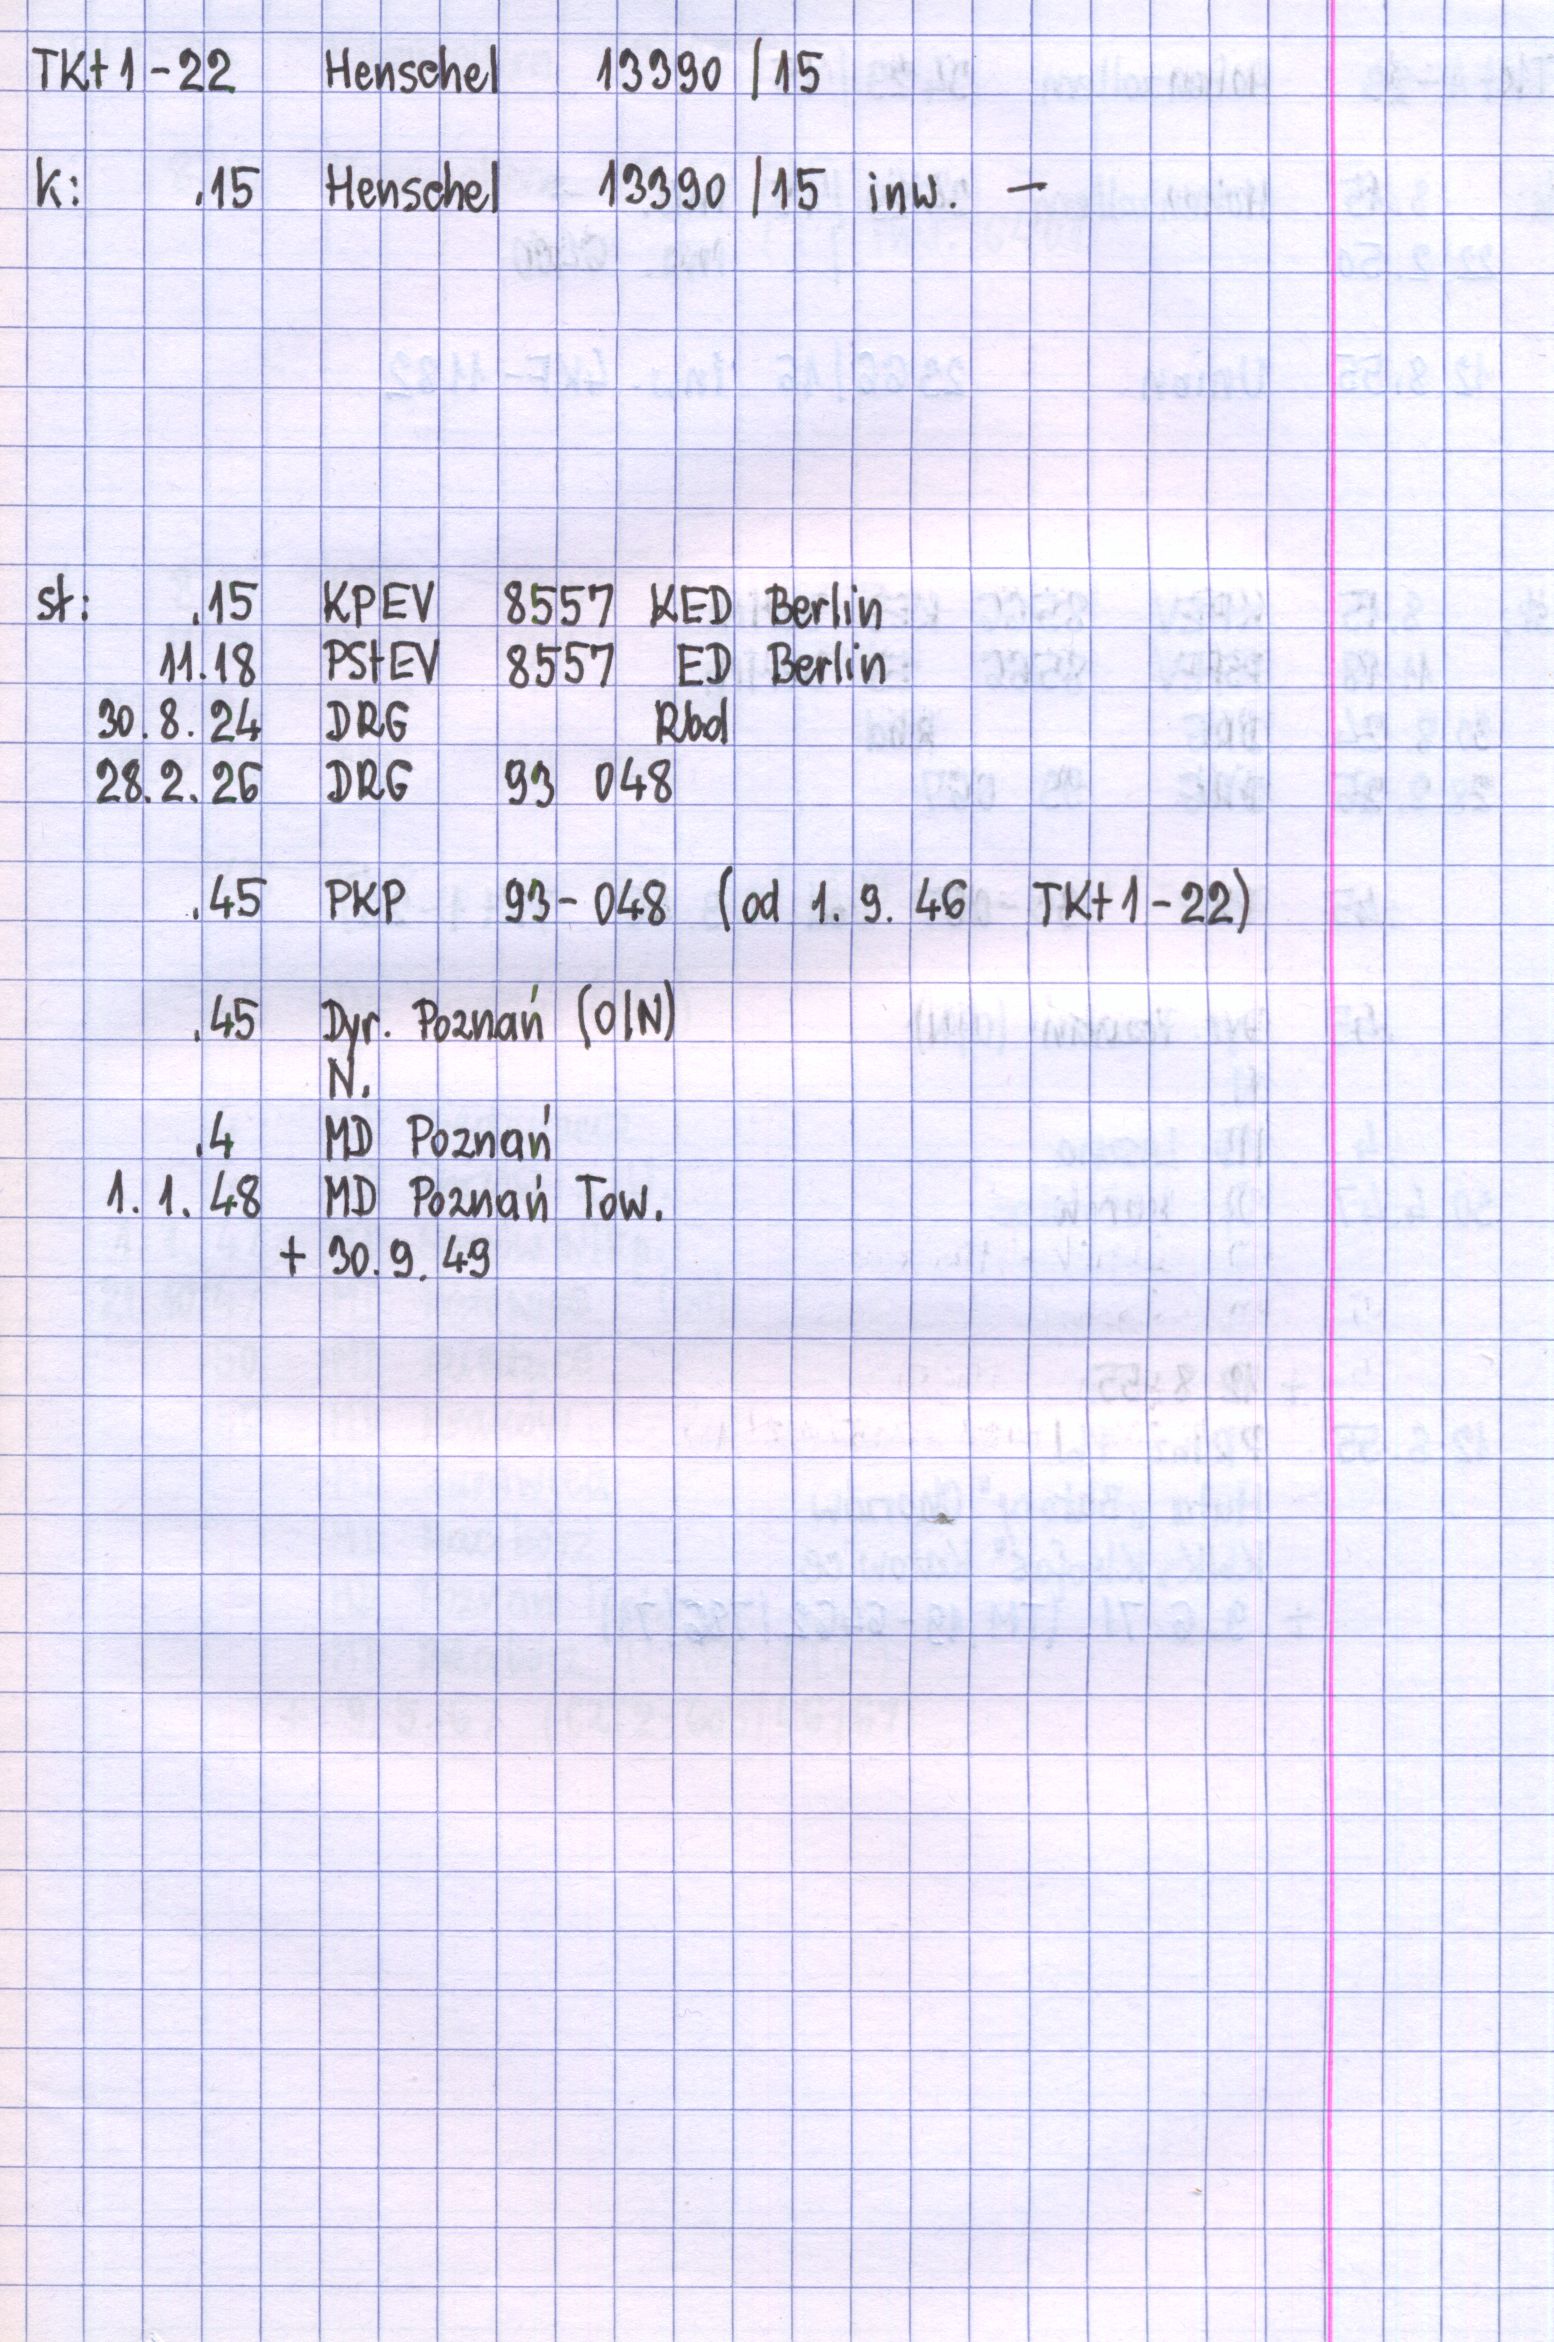 TKt1-22 Henschel 13390/15
k: .15 Henschel 13390/15 inw. -
st: .15 KPEV 8557 KED Berlin
11.18 PStEV 8557 ED Berlin
30.8.24 DRG Rbd
28.2.26 DRG 93 048
.45 PKP 93-048 (od 1.9.46 TKt1-22)
.45 Dyr. Poznań (OIN)
N.
.4 MD Poznań
1.1.48 MD Poznań Tow.
+ 30.9.49